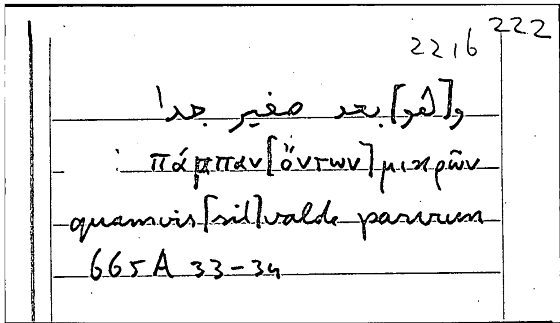 222
2216
و[هو] بعد صغير جدا
: πάμπαν [ὄντων] μικρῶν
quamvis [sit] valde parvum
665A 33-34